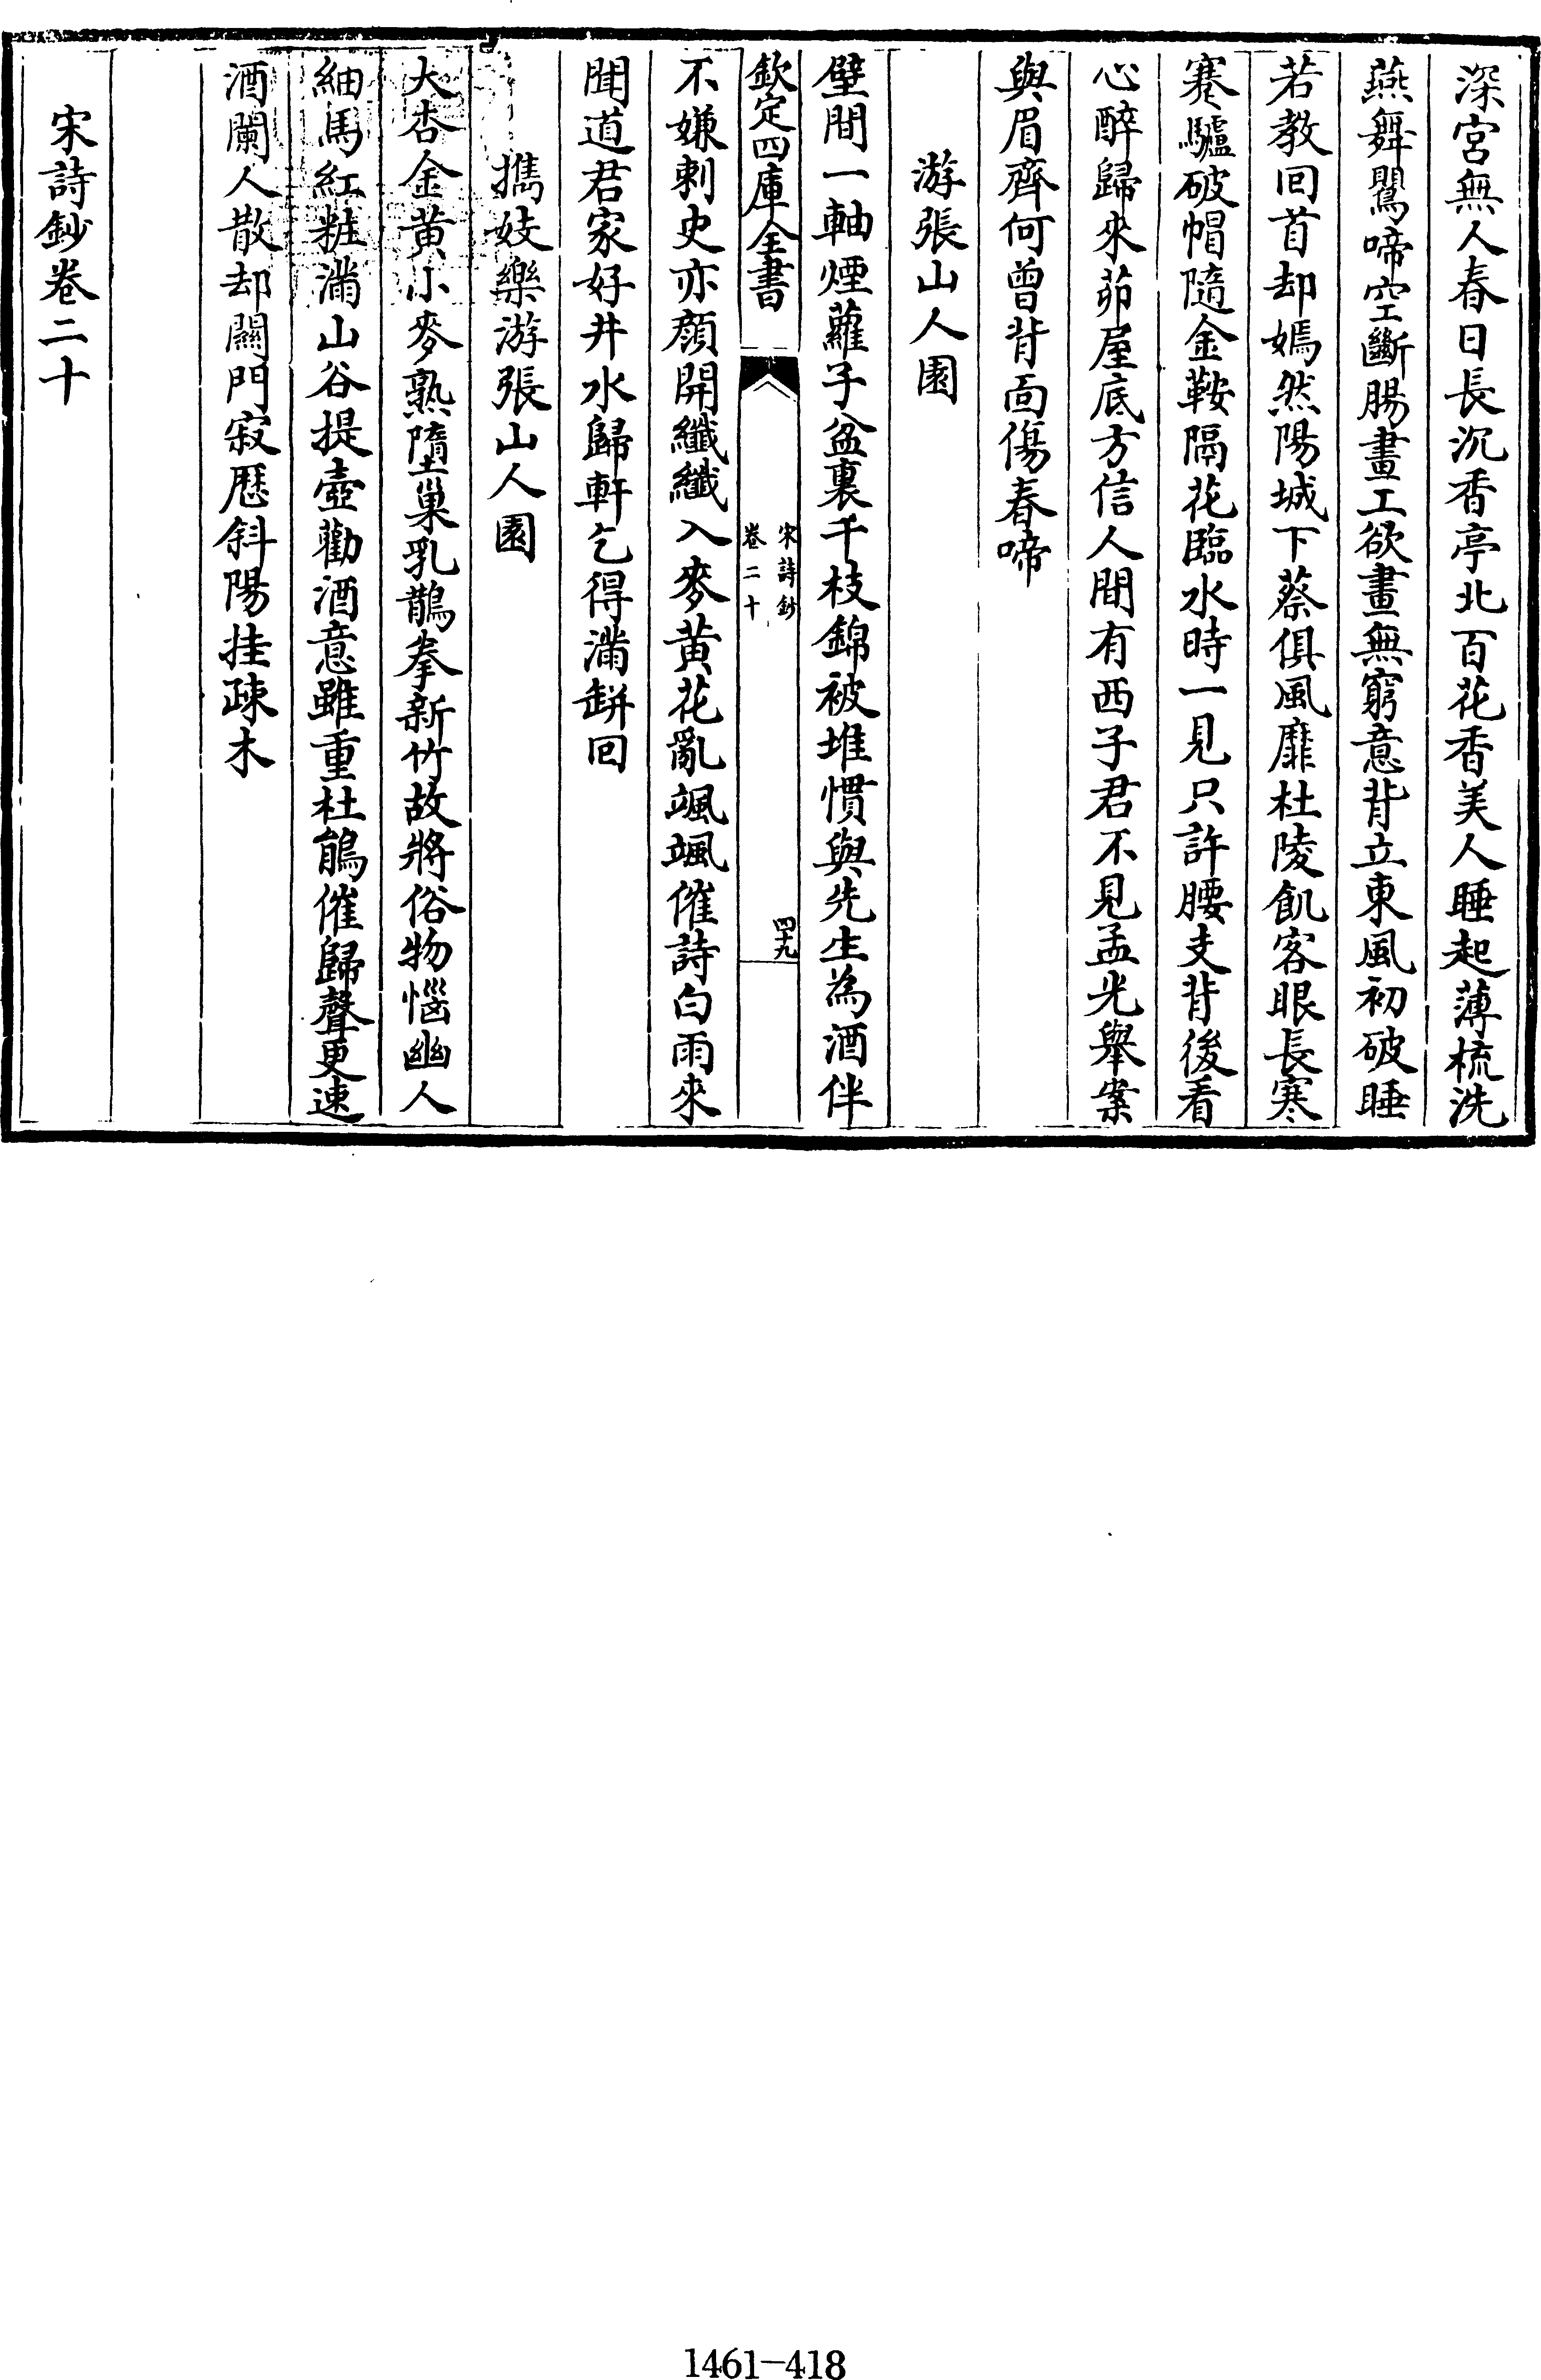 深宮無人春日長沉香亭北百花香美人睡起薄梳洗
燕舞鸎啼空斷腸畫工欲畫無窮意背立東風初破睡
若教回首却嫣然陽城下蔡俱風靡杜陵飢客眼長寒
蹇驢破帽隨金鞍隔花臨水時一見只許腰支背後看
心醉歸來茆屋底方信人間有西子君不見孟光舉案
與眉齊何曾背面傷春啼
游張山人園
壁間一軸煙蘿子盆裏千枝錦被堆慣與先生為酒伴
欽定四庫全書
宋詩鈔
卷二十
四十九
不嫌刺史亦顏開纖纖入麥黃花亂颯颯催詩白雨來
聞道君家好井水歸軒乞得滿缾回
攜妓樂游張山人園
大杏金黃小麥熟墮巢乳鵲拳新竹故將俗物惱幽人
紬馬紅粧滿山谷提壺勸酒意雖重杜鵑催歸聲更速
酒闌人散却關門寂歷斜陽挂疎木
宋詩鈔卷二十
1461-418